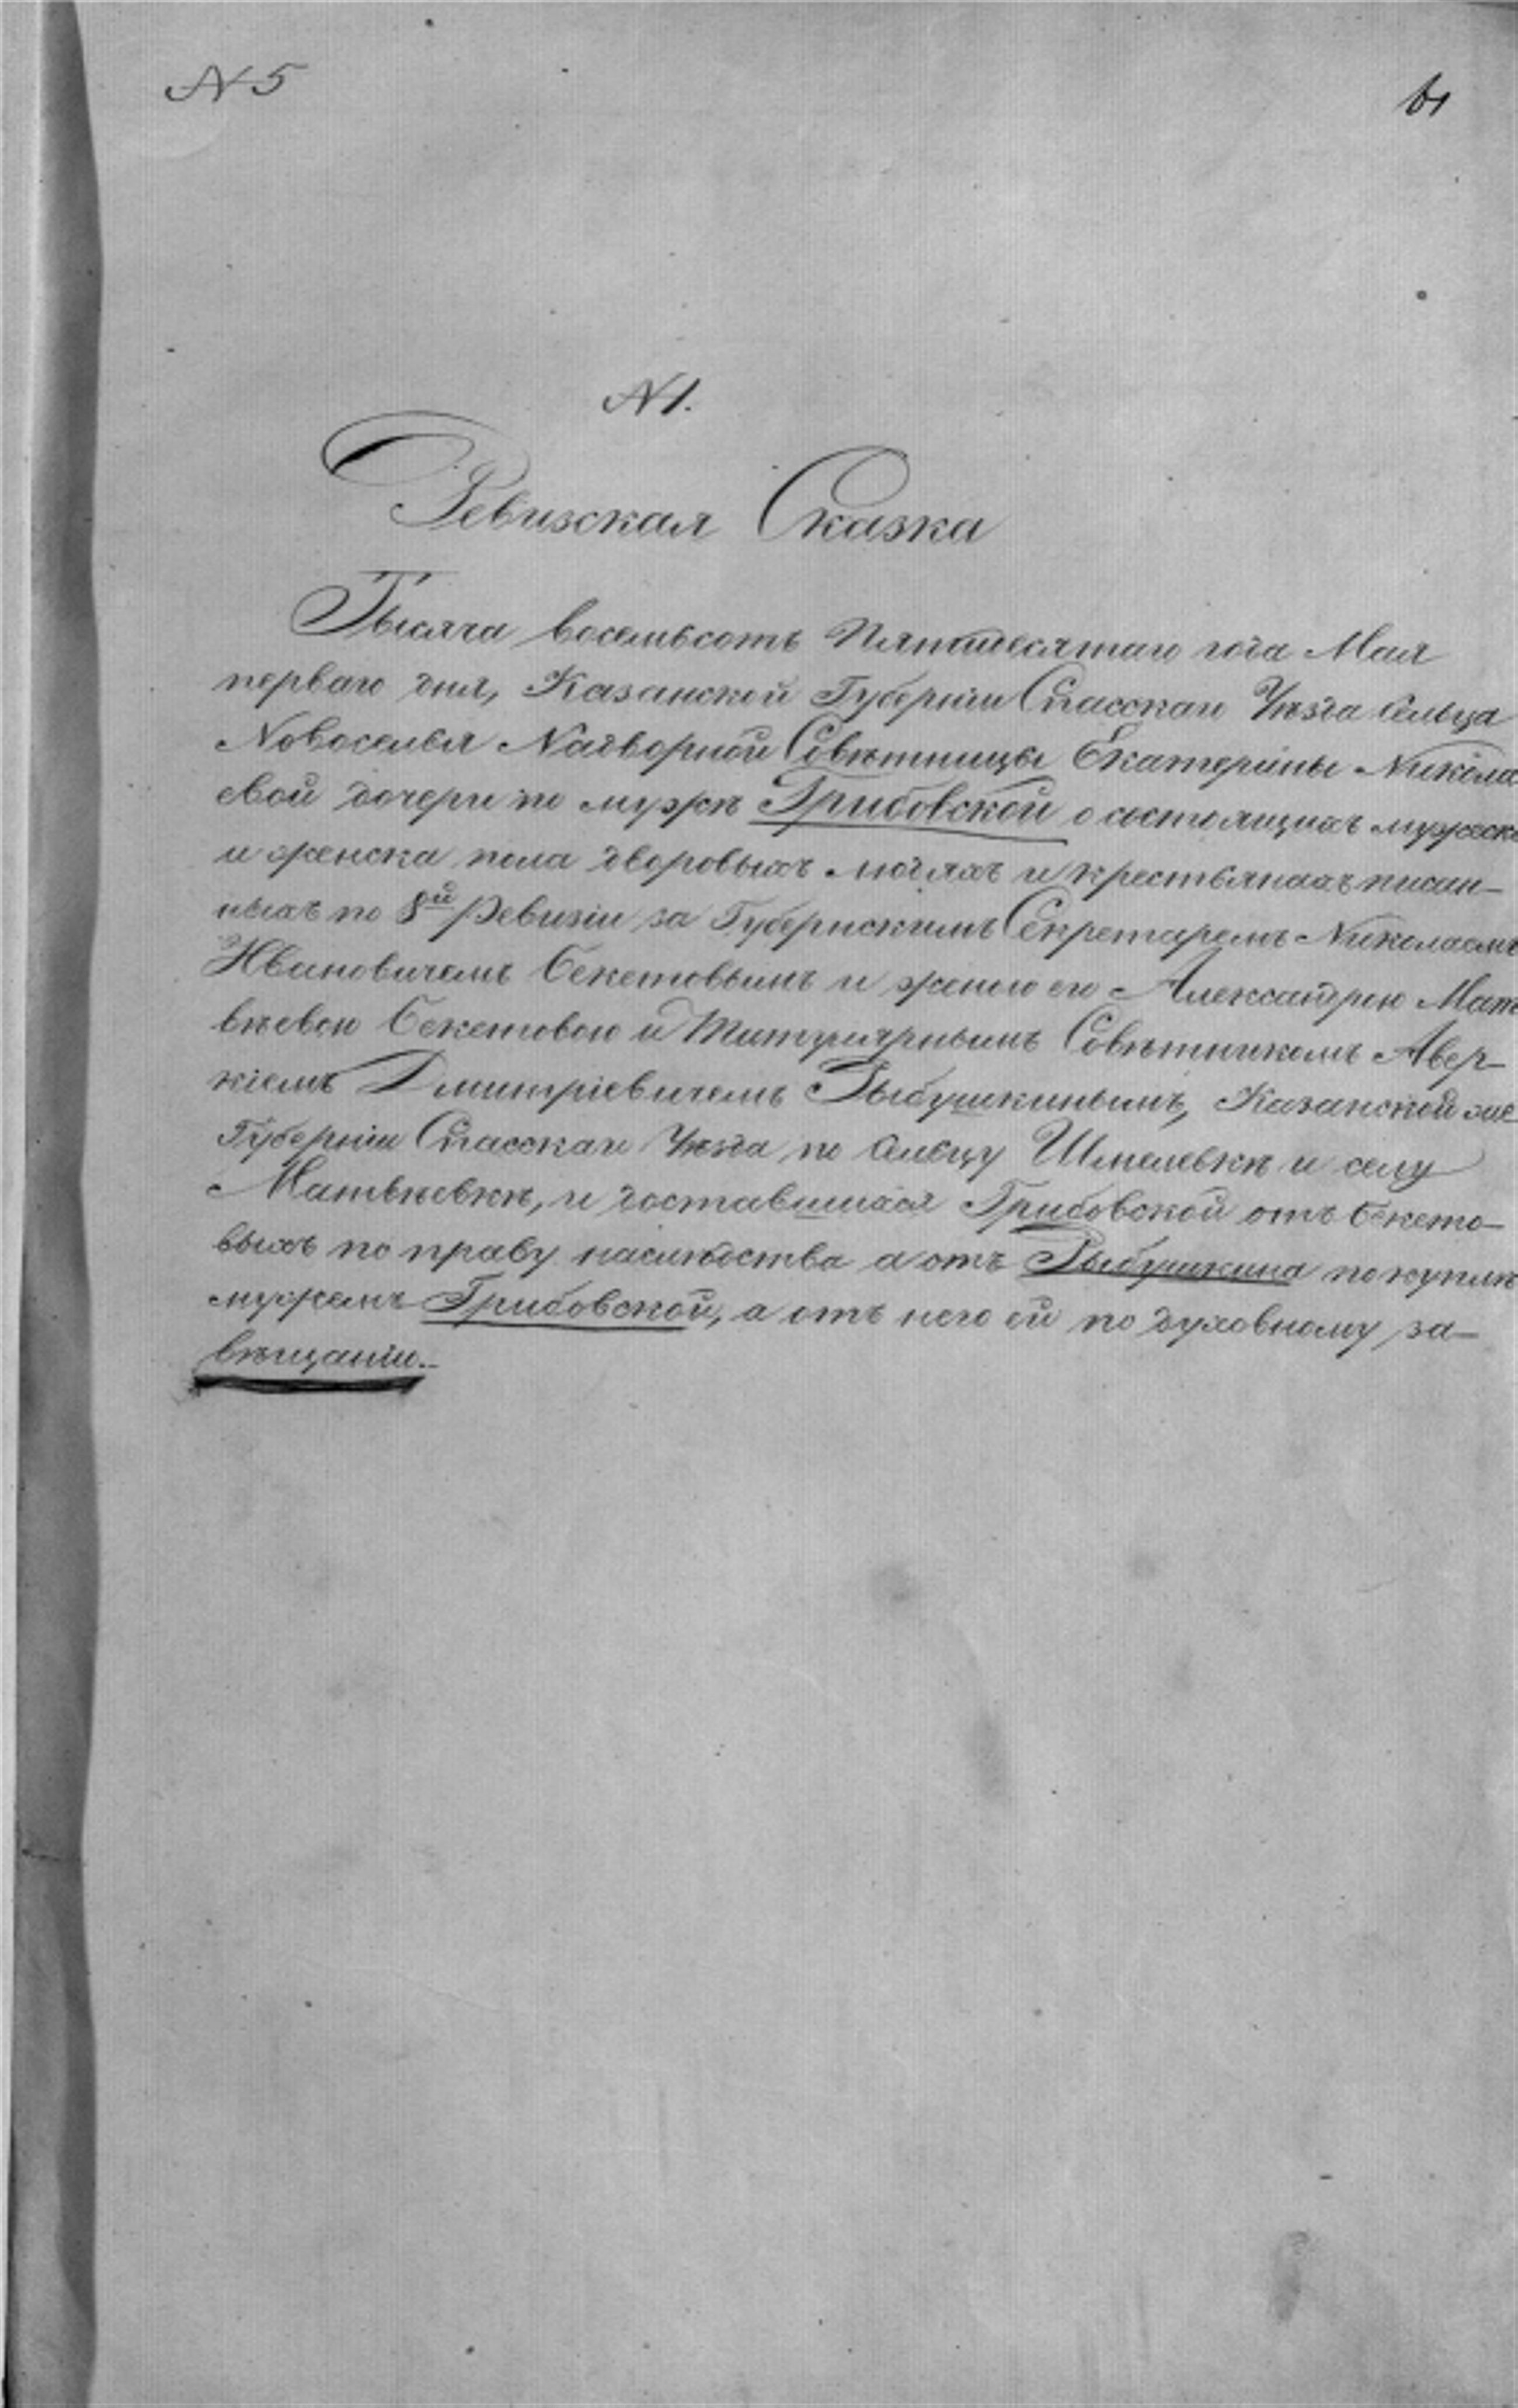 N 5
N 1.
Ревизская Сказка
Тысяча восемьсотъ Пятидесятаго года Мая
перваго дня, Казанской Губерніи Спасскаго Уѣзда Сельца
Новоселья Надворной Совѣтницы Екатерины Никола
евой дочери по мужѣ Грибовской о состоящихъ мужеска
и женска пола дворовыхъ людяхъ и крестьянахъ писан-
ныхъ по 8й Ревизіи за Губернскимъ Секретаремъ Николаемъ
Ивановичемъ Бекетовымъ и женою его Александрою Мат
вѣевою Бекетовою и Титулярнымъ Совѣтникомъ Авер-
кіемъ Дмитріевичемъ Рыбушкинымъ, Казанской же
Губерніи Спасскаго Уѣзда по Сельцу Шмелевкѣ и селу
Матвѣевкѣ, и доставшихся Грибовской отъ Бекето-
выхъ по праву наслѣдства а отъ Рыбушкина по куплѣ
мужемъ Грибовской, а отъ него ей по духовному за-
вѣщанію.